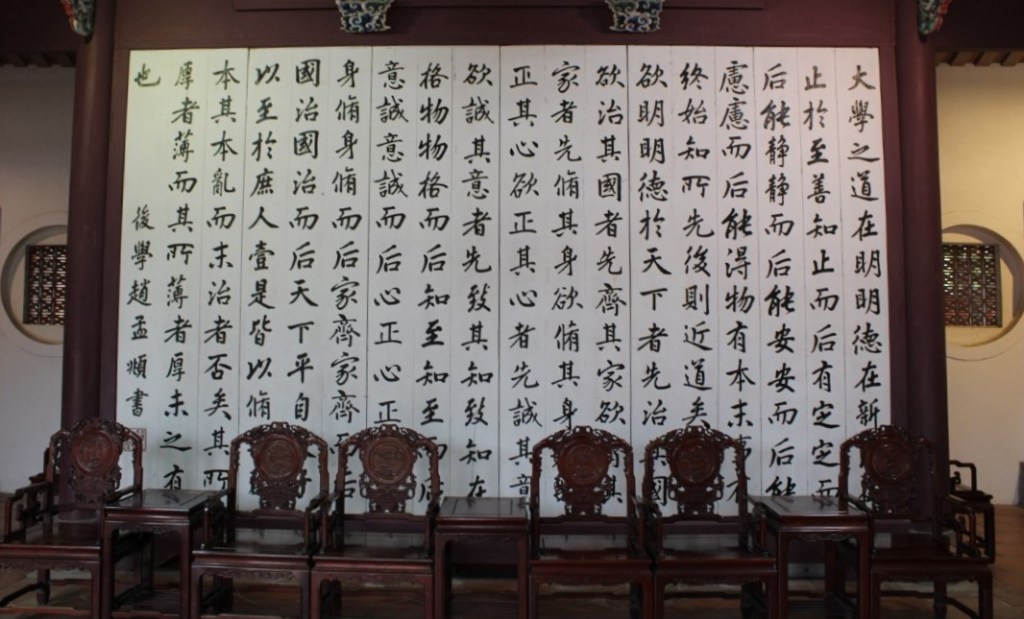 大學之道在明明德在新
止於至善知止而后有定定而
后能静静而后能安安而后能
慮慮而后能得物有本末事有
終始知所先後則近道矣
欲明明德於天下者先治其國
欲治其國者先齊其家欲其
家者先脩其身欲脩其身
正其心欲正其心者先誠其意
欲誠其意者先致其知致知在
格物物格而后知至知至而后
意誠意誠而后心正心正
身脩身脩而后家齊家齊而后
國治國治而后天下平自
以至於庶人壹是皆以脩
本其本亂而末治者否矣其所
厚者薄而其所薄者厚未之有
也
後學趙孟頫書